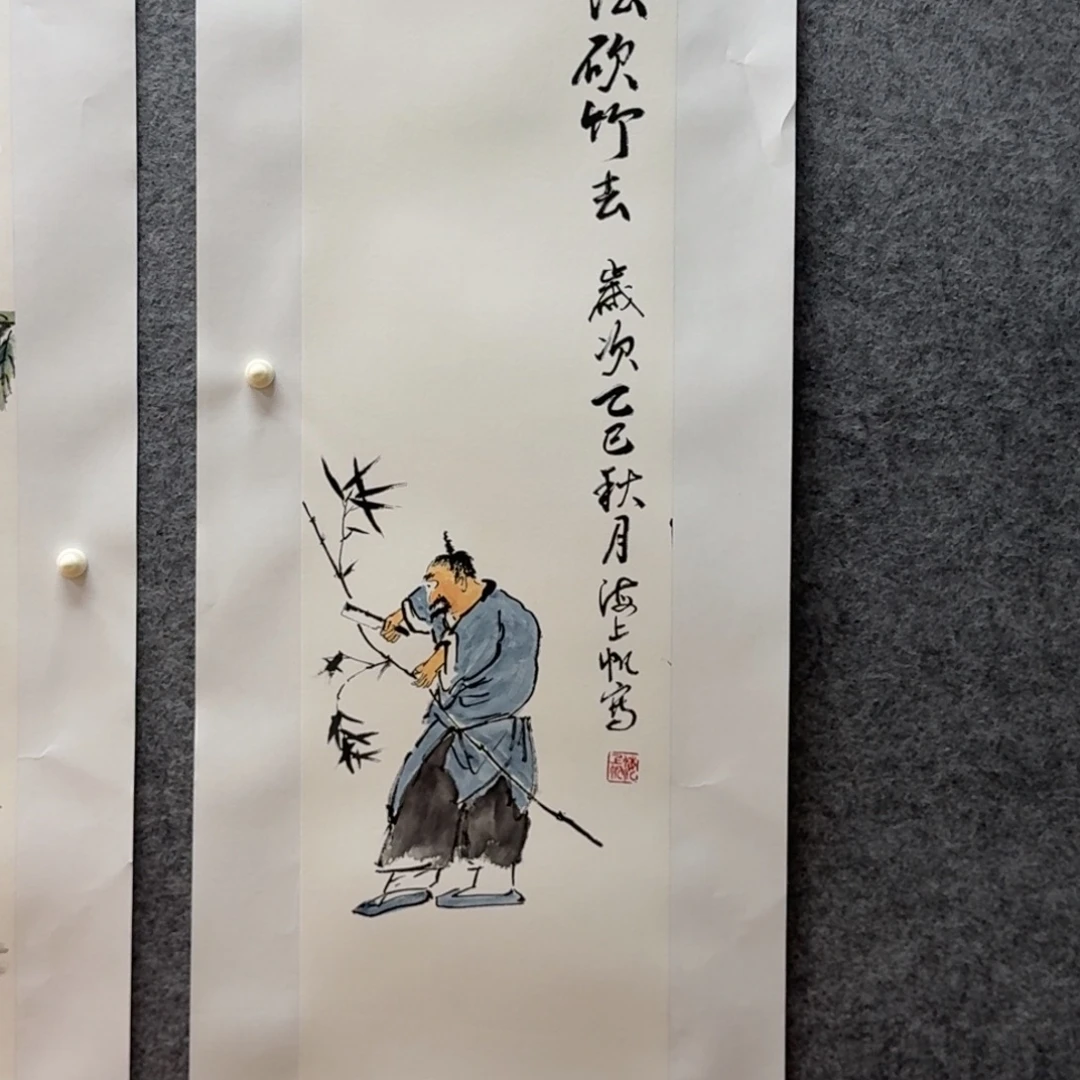 砍竹去 歲次乙巳秋月海上帆寫